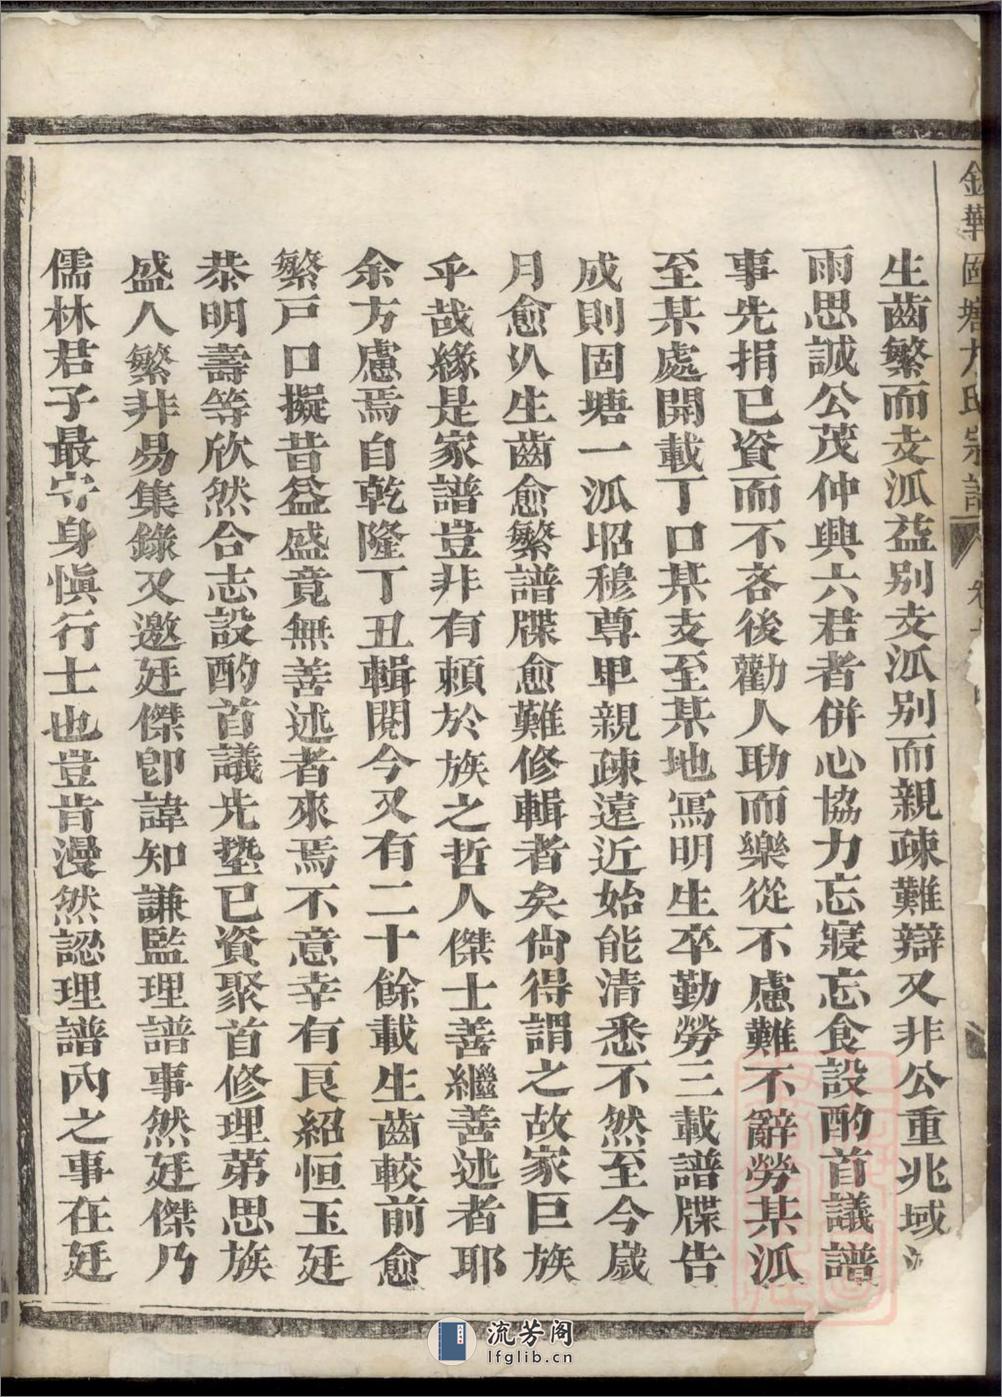 金華固塘方氏宗譜
生齒繁而支派益别支派别而親疎難辯又非公重兆域
雨思誠公茂仲興六君者併心協力忘寢忘食設酌首議譜
事先捐已資而不吝後勸人助而樂從不慮難不辭勞某派
至某處開載丁口某支至某地寫明生卒勤勞三載譜牒告
成則固塘一派昭穆尊卑親疎遠近始能清悉不然至今歲
月愈久生齒愈繁譜牒愈難修輯者矣尙得謂之故家巨族
乎哉緣是家譜豈非有頼於族之哲人傑士善繼善述者耶
余方慮焉自乾隆丁丑輯閱今又有二十餘載生齒較前愈
繁戸口擬昔益盛竟無善述者來焉不意幸有良紹恒玉廷
恭明壽等欣然合志設酌首議先墊已資聚首修理第思族
盛人繁非易集錄又邀廷傑卽諱知謙監理譜事然廷傑乃
儒林君子最守身愼行士也豈肯漫然認理譜內之事在廷
流芳阁
lfglib.cn